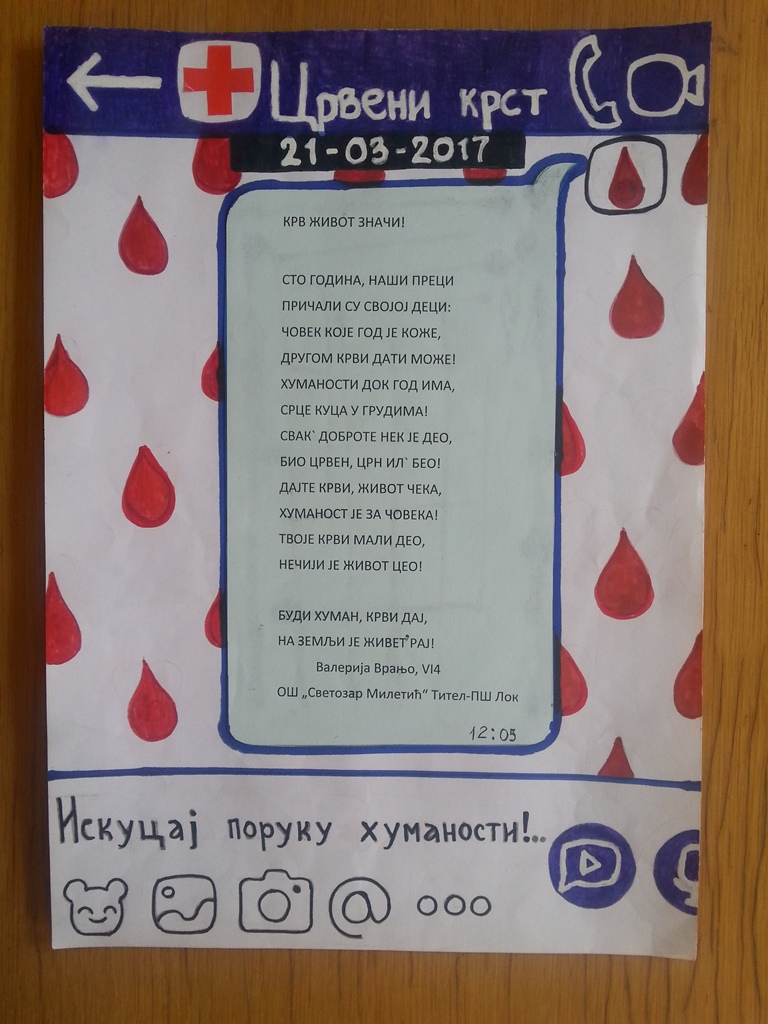 Црвени крст
21-03-2017
КРВ ЖИВОТ ЗНАЧИ!
СТО ГОДИНА, НАШИ ПРЕЦИ
ПРИЧАЛИ СУ СВОЈОЈ ДЕЦИ:
ЧОВЕК КОЈЕ ГОД ЈЕ КОЖЕ,
ДРУГОМ КРВИ ДАТИ МОЖЕ!
ХУМАНОСТИ ДОК ГОД ИМА,
СРЦЕ КУЦА У ГРУДИМА!
СВАК` ДОБРОТЕ НЕК ЈЕ ДЕО,
БИО ЦРВЕН, ЦРН ИЛ` БЕО!
ДАЈТЕ КРВИ, ЖИВОТ ЧЕКА,
ХУМАНОСТ ЈЕ ЗА ЧОВЕКА!
ТВОЈЕ КРВИ МАЛИ ДЕО,
НЕЧИЈИ ЈЕ ЖИВОТ ЦЕО!
БУДИ ХУМАН, КРВИ ДАЈ,
НА ЗЕМЉИ ЈЕ ЖИВЕТ'РАЈ!
Валерија Врањо, VI4
ОШ „Светозар Милетић“ Тител-ПШ Лок
12:05
Искуцај поруку хуманости!...
@